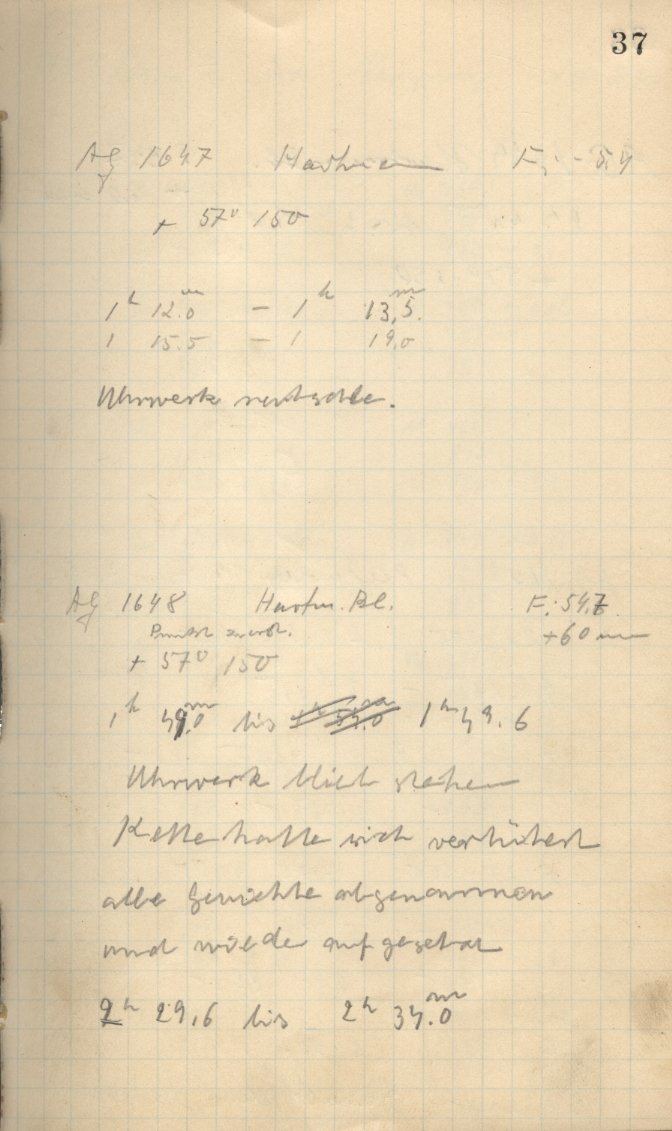 37
Ag 1647 Hartman F: 54
+ 57° 150
1h 12.0m – 1h 13,5m
1 15.5 – 1 19,0
Uhrwerk rutschte.
Ag 1648 Hartm. Bl. F: 54,7
+60 mm
+ 57° 150
1h 49.0m bis 1h 49.6
Uhrwerk blieb stehen
Kette hatte sich
alle Gewichte abgenommen
und wieder aufgesetzt
2h 29,6 bis 2h 34.0m